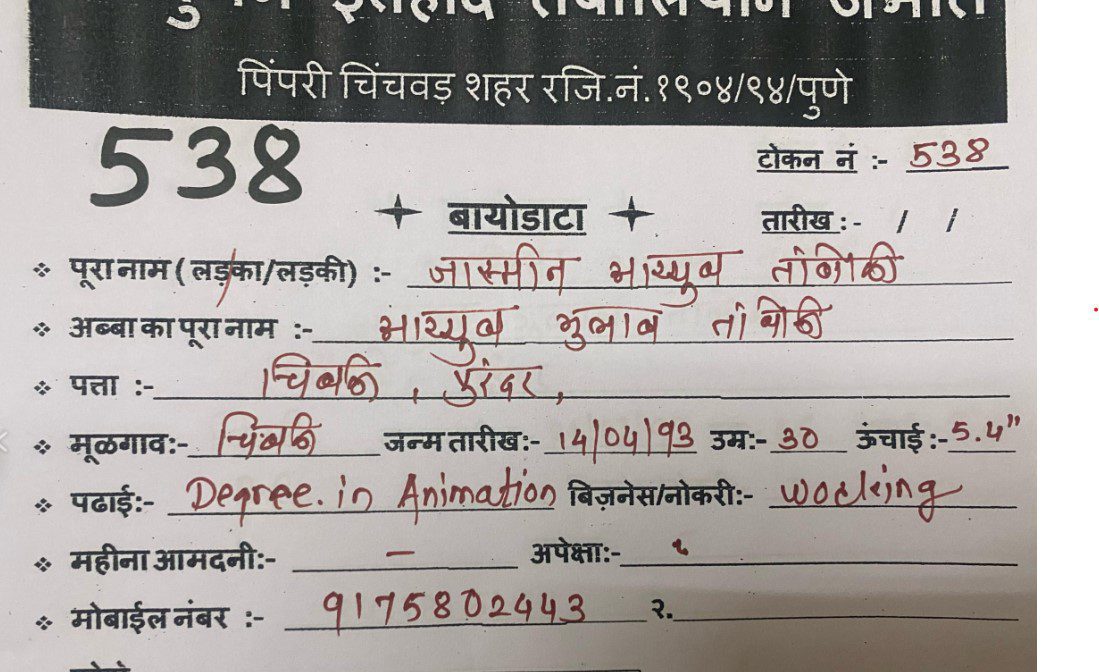 इत्तेहाद तंबोलियान जमात
पिंपरी चिंचवड शहर रजि.नं.१९०४/९४/पुणे
538
टोकन नं :- 538
बायोडाटा तारीख :- / /
पूरा नाम (लड़का/लड़की) :- जास्मीन आय्युब तांबोळी
अब्बा का पूरा नाम :- आय्युब गुलाब तांबोळी
पत्ता :- चिवळी, पुरंदर,
मूळगाव:- चिवळी जन्म तारीख:- 14/04/93 उम्र:- 30 ऊंचाई :- 5.4"
पढाई:- Degree. in Animation बिज़नेस/नोकरी:- working
महीना आमदनी:- – अपेक्षा:-
मोबाईल नंबर :- 9175802443 २.